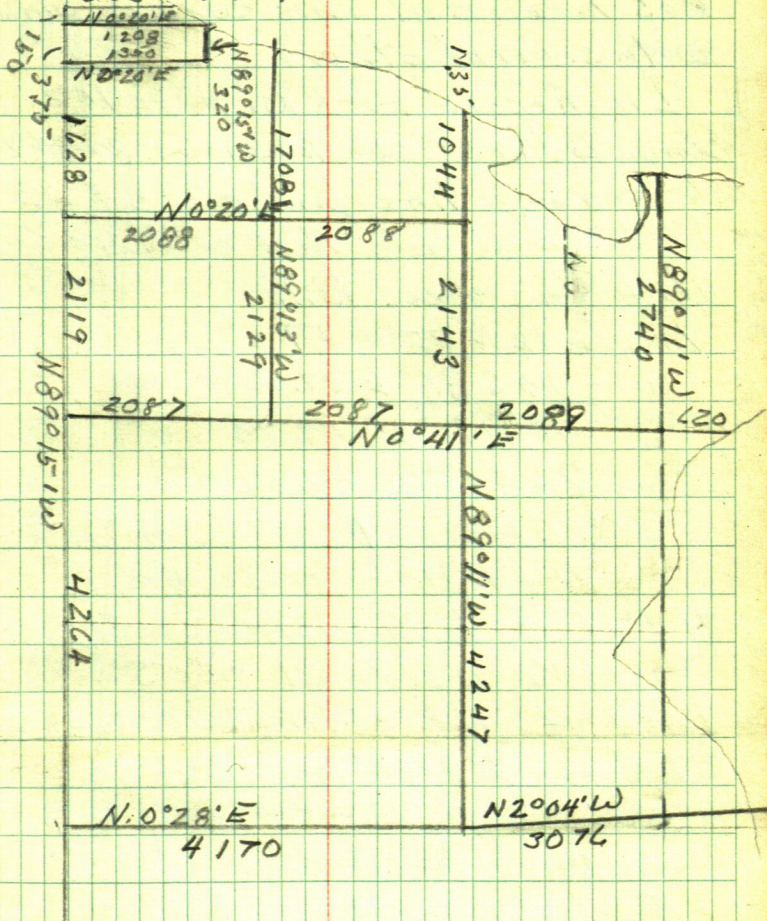 N 0°20'E
1208
1350
N 0°20'E
150
375
N 89°15'W
320
1628
1708
N 35'
1044
N 0°20'E
2088
2088
2119
N 89°13'W
2129
2143
No
N 89°11'W
2740
2087
2087
2089
620
N 0°41'E
N 89°15'W
4264
N 89°11'W 4247
N. 0°28'E
4170
N 2°04'W